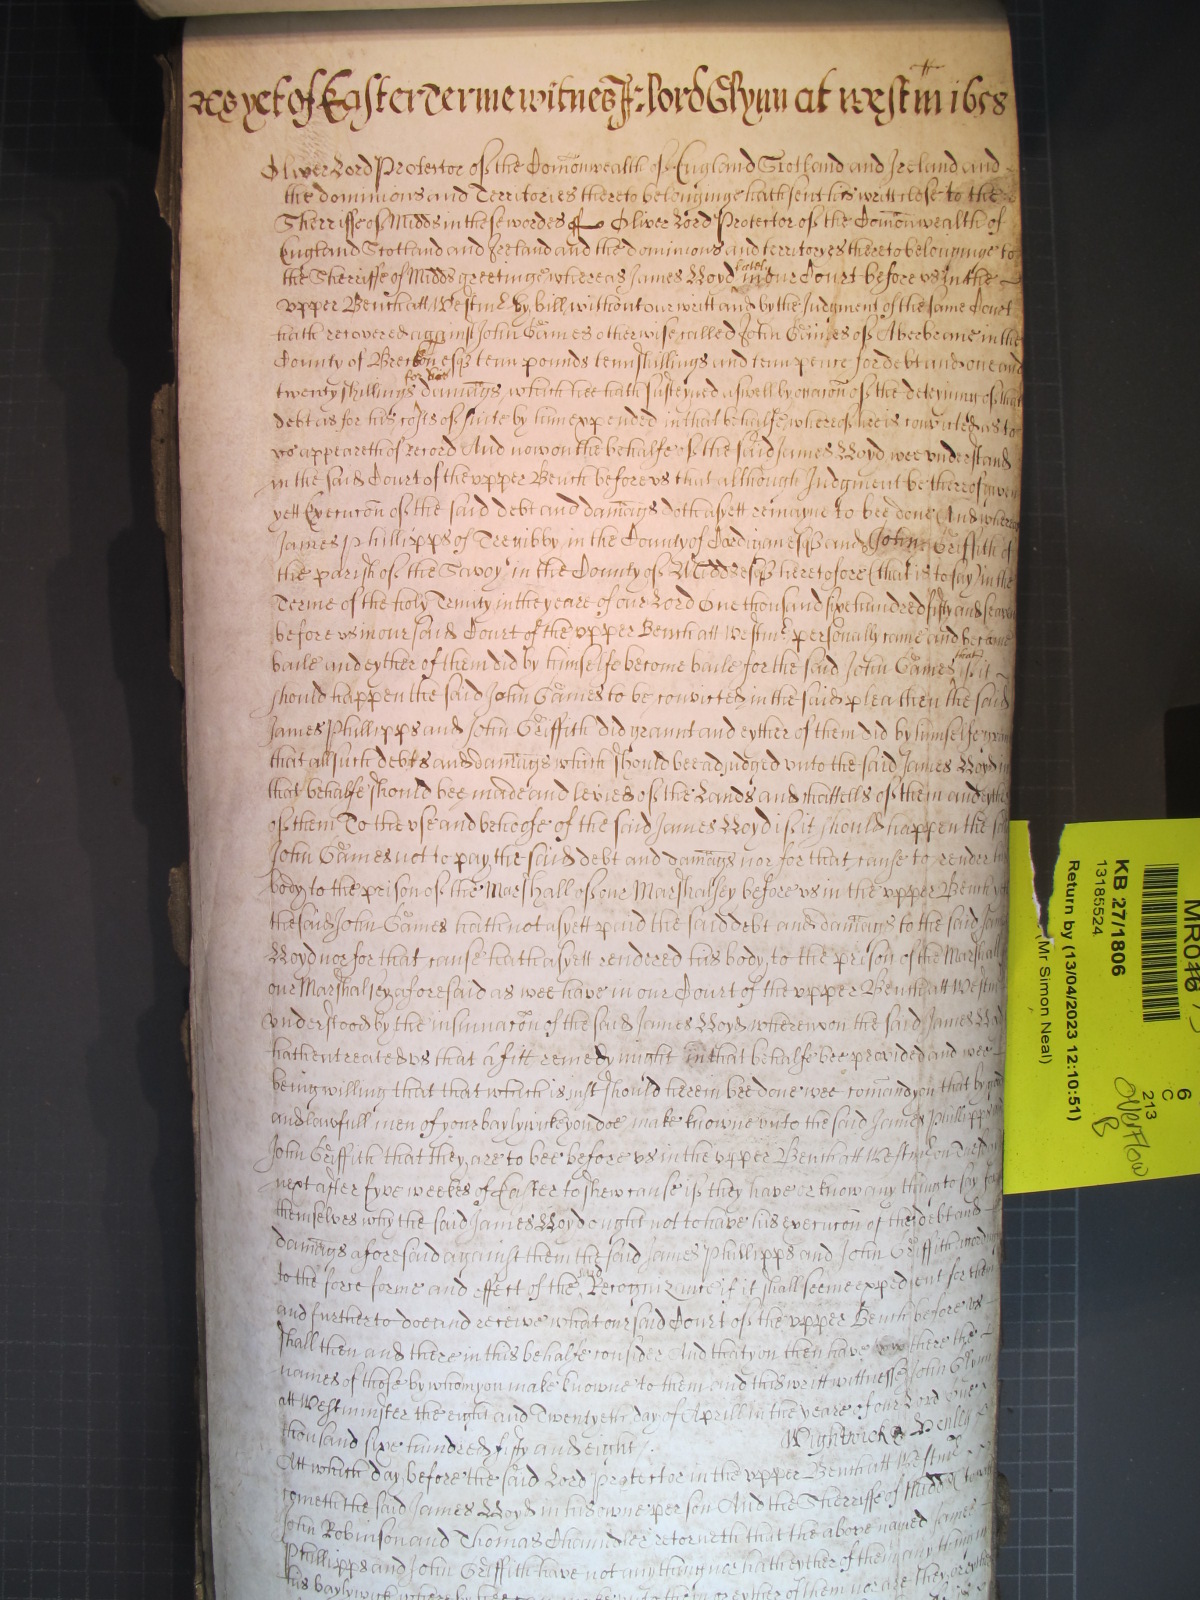 as yet of Easter Terme witnes Jo: Lord Glynn at Westm 1658
Oliver Lord Protector of the Comonwealth of England Scotland and Ireland and
the dominions and Territories thereto belonginge hath sent his writt close to the
Sherriffe of Midds in these wordes ss Oliver Lord Protector of the Comonwealth of
England Scotland and Ireland and the dominions and territoryes thereto belonginge to
the Sherriffe of Midds greetinge whereas James Lloyd lately in our Court before us in the
upper Bench att Westmr by bill without our writt and by the Judgment of the same Court
hath recovered against John Games otherwise called John Games of Aberbrane in the
County of Brecon esqr tenn pounds tenn shillings and tenn pence for debt and one and
twenty shillings for his damags which hee hath susteyned aswell by occacon of the deteyning of that
debt as for his costs of suite by him expended in that behalfe whereof hee is convicted as to
us appeareth of record And now on the behalfe of the said James Lloyd wee understand
in the said Court of the upper Bench before us that although Judgment be thereof given
yett Execucon of the said debt and damags doth as yett remayne to bee done And whereas
James Phillipps of Tre in the County of Cardigan esqr and John Griffith of
the parish of the Savoy in the County of Midds esqr heretofore (that is to say) in the
Terme of the holy Trinity in the yeare of our Lord One thousand sixe hundred fifty and seaven
before us in our said Court of the upper Bench att Westmr personally came and became
baile and eyther of them did by himselfe become baile for the said John Games that if it
should happen the said John Games to be convicted in the said plea then the said
James Phillipps and John Griffith did graunt and eyther of them did by himselfe graunt
that all such debts and damags which should bee adjudged unto the said James Lloyd in
that behalfe should bee made and levied of the Lands and chattells of them and eyther
of them To the use and behoofe of the said James Lloyd if it should happen the said
John Games not to pay the said debt and damags nor for that cause to render his
body to the prison of the Marshall of our Marshalsey before us in the upper Bench yett
the said John Games hath not as yett paid the said debt and damags to the said James
Lloyd nor for that cause hath as yett rendered his body to the prison of the Marshall
our Marshalsey aforesaid as wee have in our Court of the upper Bench att Westmr
understood by the insinuacon of the said James Lloyd whereupon the said James Lloyd
hath entreated us that a fitt remedy might in that behalfe bee provided and wee
being willing that that which is just should herein bee done wee comand you that by good
and lawfull men of your baylywicke you doe make knowne unto the said James Phillipps and
John Griffith that they are to bee before us in the upper Bench att Westmr on Tuesday
next after fyve weekes of Easter to shew cause if they have or know any thing to say for
themselves why the said James Lloyd ought not to have his execucon of the debt and
damags aforesaid against them the said James Phillipps and John Griffith according
to the force forme and effect of the said Recognizance if it shall seeme expedient for them
and further to doe and receive what our said Court of the upper Bench before us
shall then and there in this behalfe consider And that you then have there the
names of those by whom you make knowne to them and this writt wittnesse John Glynn
att Westminster the eight and Twentyeth day of Aprill in the yeare of our Lord One
thousand sixe hundred fifty and eight Wightwick & Henley
Att which day before the said Lord Protector in the upper Bench att Westmr
cometh the said James Lloyd in his owne person And the Sherriffe of Midds to witt
John Robinson and Thomas Chaundler retorneth that the above named James
Phillipps and John Griffith have not any thing nor hath eyther of them any thing in
his baylywick whereby hee them nor eyther of them nor are they or eyther
MR046
KB 27/1806
13185524
Return by (13/04/2023 12:10:51)
(Mr Simon Neal)
6
C
213
Overflow
B